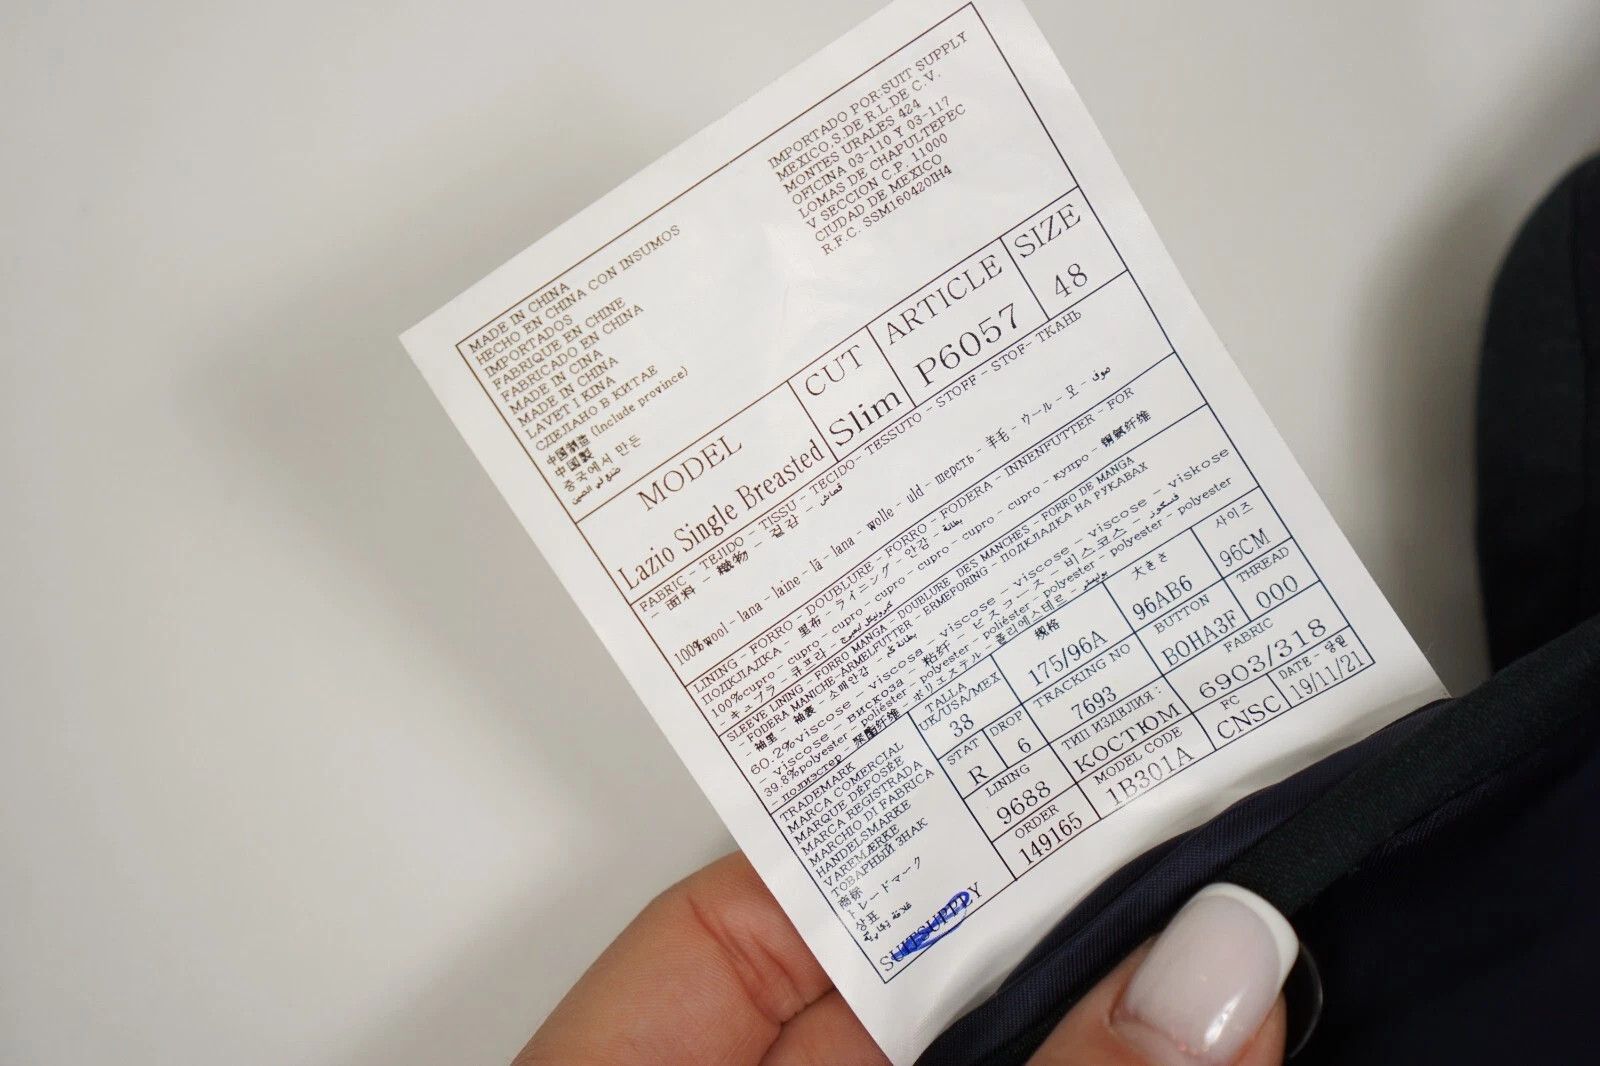 IMPORTADO POR:SUIT SUPPLY
MEXICO, S.DE R.L.DE C.V.
MONTES URALES 424
OFICINA 03-110 Y 03-117
LOMAS DE CHAPULTEPEC
V SECCION C.P. 11000
CIUDAD DE MEXICO
R.F.C. SSM160420IH4
MADE IN CHINA
HECHO EN CHINA CON INSUMOS
IMPORTADOS
FABRIQUE EN CHINE
FABRICADO EN CHINA
MADE IN CINA
MADE IN CHINA
LAVET I KINA
СДЕЛАНО В КИТАЕ
中国制造 (Include province)
中国製
중국에서 만든
صنع في الصين
MODEL CUT ARTICLE SIZE
Lazio Single Breasted Slim P6057 48
FABRIC - TEJIDO - TISSU - TECIDO- TESSUTO - STOFF - STOF- ТКАНЬ
- 面料 - 織物 - 걸감 - قماش
100%wool - lana - laine - lã - lana - wolle - uld - шерсть - 羊毛 - ウール - 모 - صوف
LINING - FORRO - DOUBLURE - FORRO - FODERA - INNENFUTTER - FOR
ПОДКЛАДКА - 里布 - ライニング - 안감 - بطانة
100%cupro - cupro - cupro - cupro - cupro - cupro - cupro - купро - 铜氨纤维
- キュプラ - 큐프라 -
SLEEVE LINING - FORRO MANGA - DOUBLURE DES MANCHES - FORRO DE MANGA
- FODERA MANICHE-ARMELFUTTER - ERMEFORING - ПОДКЛАДКА НА РУКАВАХ
- 袖里 - 袖裏 - 소매안감 - بطانة كم
60.2%viscose - viscosa - viscose - viscose - viscose - viskose
- viscose - вискоза - 粘纤 - ビスコース - 비스코스 - فسكوز
39.8%polyester - poliéster - polyester - poliéster - polyester - polyester
- полиэстер - 聚酯纤维 - ポリエステル - 폴리에스테르 - بوليستر
TRADEMARK
MARCA COMERCIAL
MARQUE DÉPOSÉE
MARCA REGISTRADA
MARCHIO DI FABRICA
HANDELSMARKE
VAREMÆRKE
ТОВАРНЫЙ ЗНАК
商标
トレードマーク
상표
علامة تجارية
SUITSUPPLY
TALLA 规格 大きさ 사이즈
UK/USA/MEX 175/96A 96AB6 96CM
38
STAT DROP TRACKING NO BUTTON THREAD
R 6 7693 BOHA3F 000
LINING ТИП ИЗДВЛИЯ : FABRIC
9688 КОСТЮМ 6903/318
ORDER MODEL CODE FC DATE - 영월
149165 1B301A CNSC 19/11/21